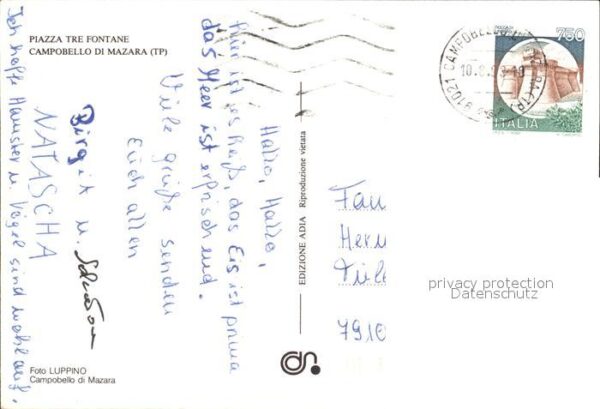 PIAZZA TRE FONTANE
CAMPOBELLO DI MAZARA (TP)
Hallo, Hallo,
hier ist es heiß, das Eis ist prima
das Meer ist erfrischend.
Viele Grüße senden
Euch allen
Birgit u.
NATASCHA
Ich hoffe Hamster u. Vögel sind wohlauf.
Foto LUPPINO
Campobello di Mazara
EDIZIONE ADIA Riproduzione vietata
750
ITALIA
91021 CAMPOBELLO
10.8
Fam
Herm
791
privacy protection
Datenschutz